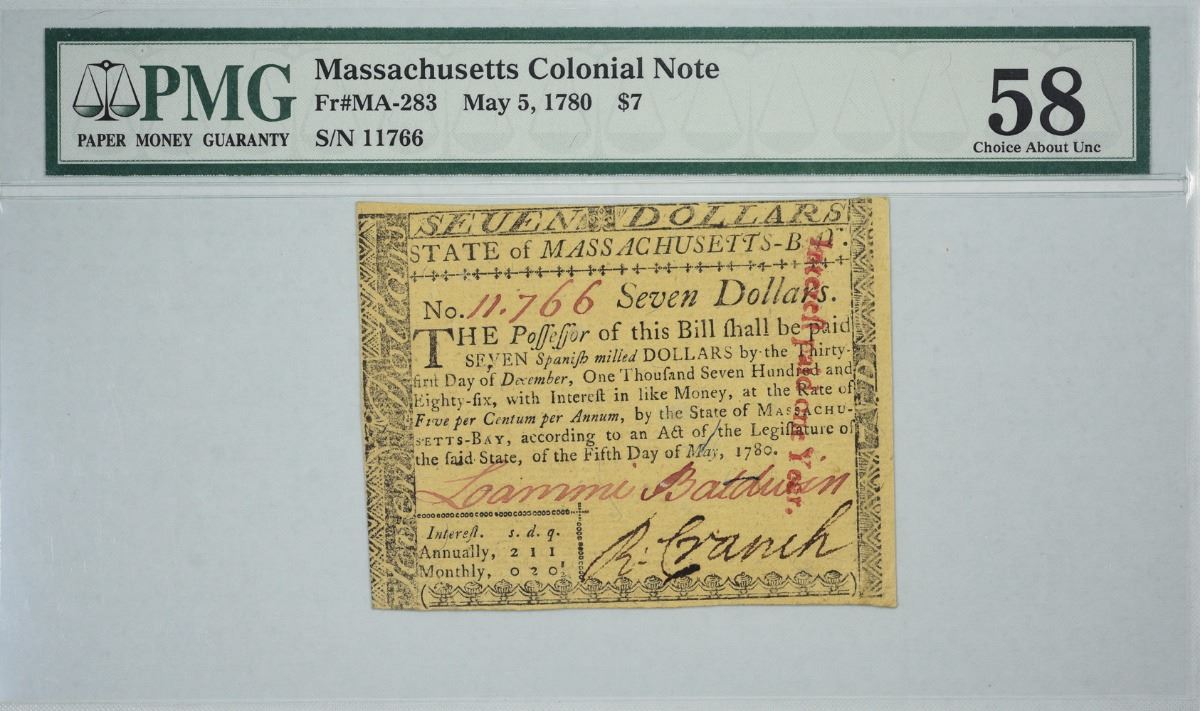 PMG
PAPER MONEY GUARANTY
Massachusetts Colonial Note
Fr#MA-283 May 5, 1780 $7
S/N 11766
58
Choice About Unc
SEUEN DOLLARS
STATE of MASSACHUSETTS-BAY.
No. 11.766 Seven Dollars.
THE Poſſeſſor of this Bill ſhall be paid
SEVEN Spaniſh milled DOLLARS by the Thirty-
firſt Day of December, One Thouſand Seven Hundred and
Eighty-ſix, with Intereſt in like Money, at the Rate of
Five per Centum per Annum, by the State of MASSACHU-
SETTS-BAY, according to an Act of the Legiſlature of
the ſaid State, of the Fifth Day of May, 1780.
Loammi Baldwin
Intereſt. s. d. q.
Annually, 2 1 1
Monthly, 0 2 0½
R. Cranch
Intereſt paid one Year.